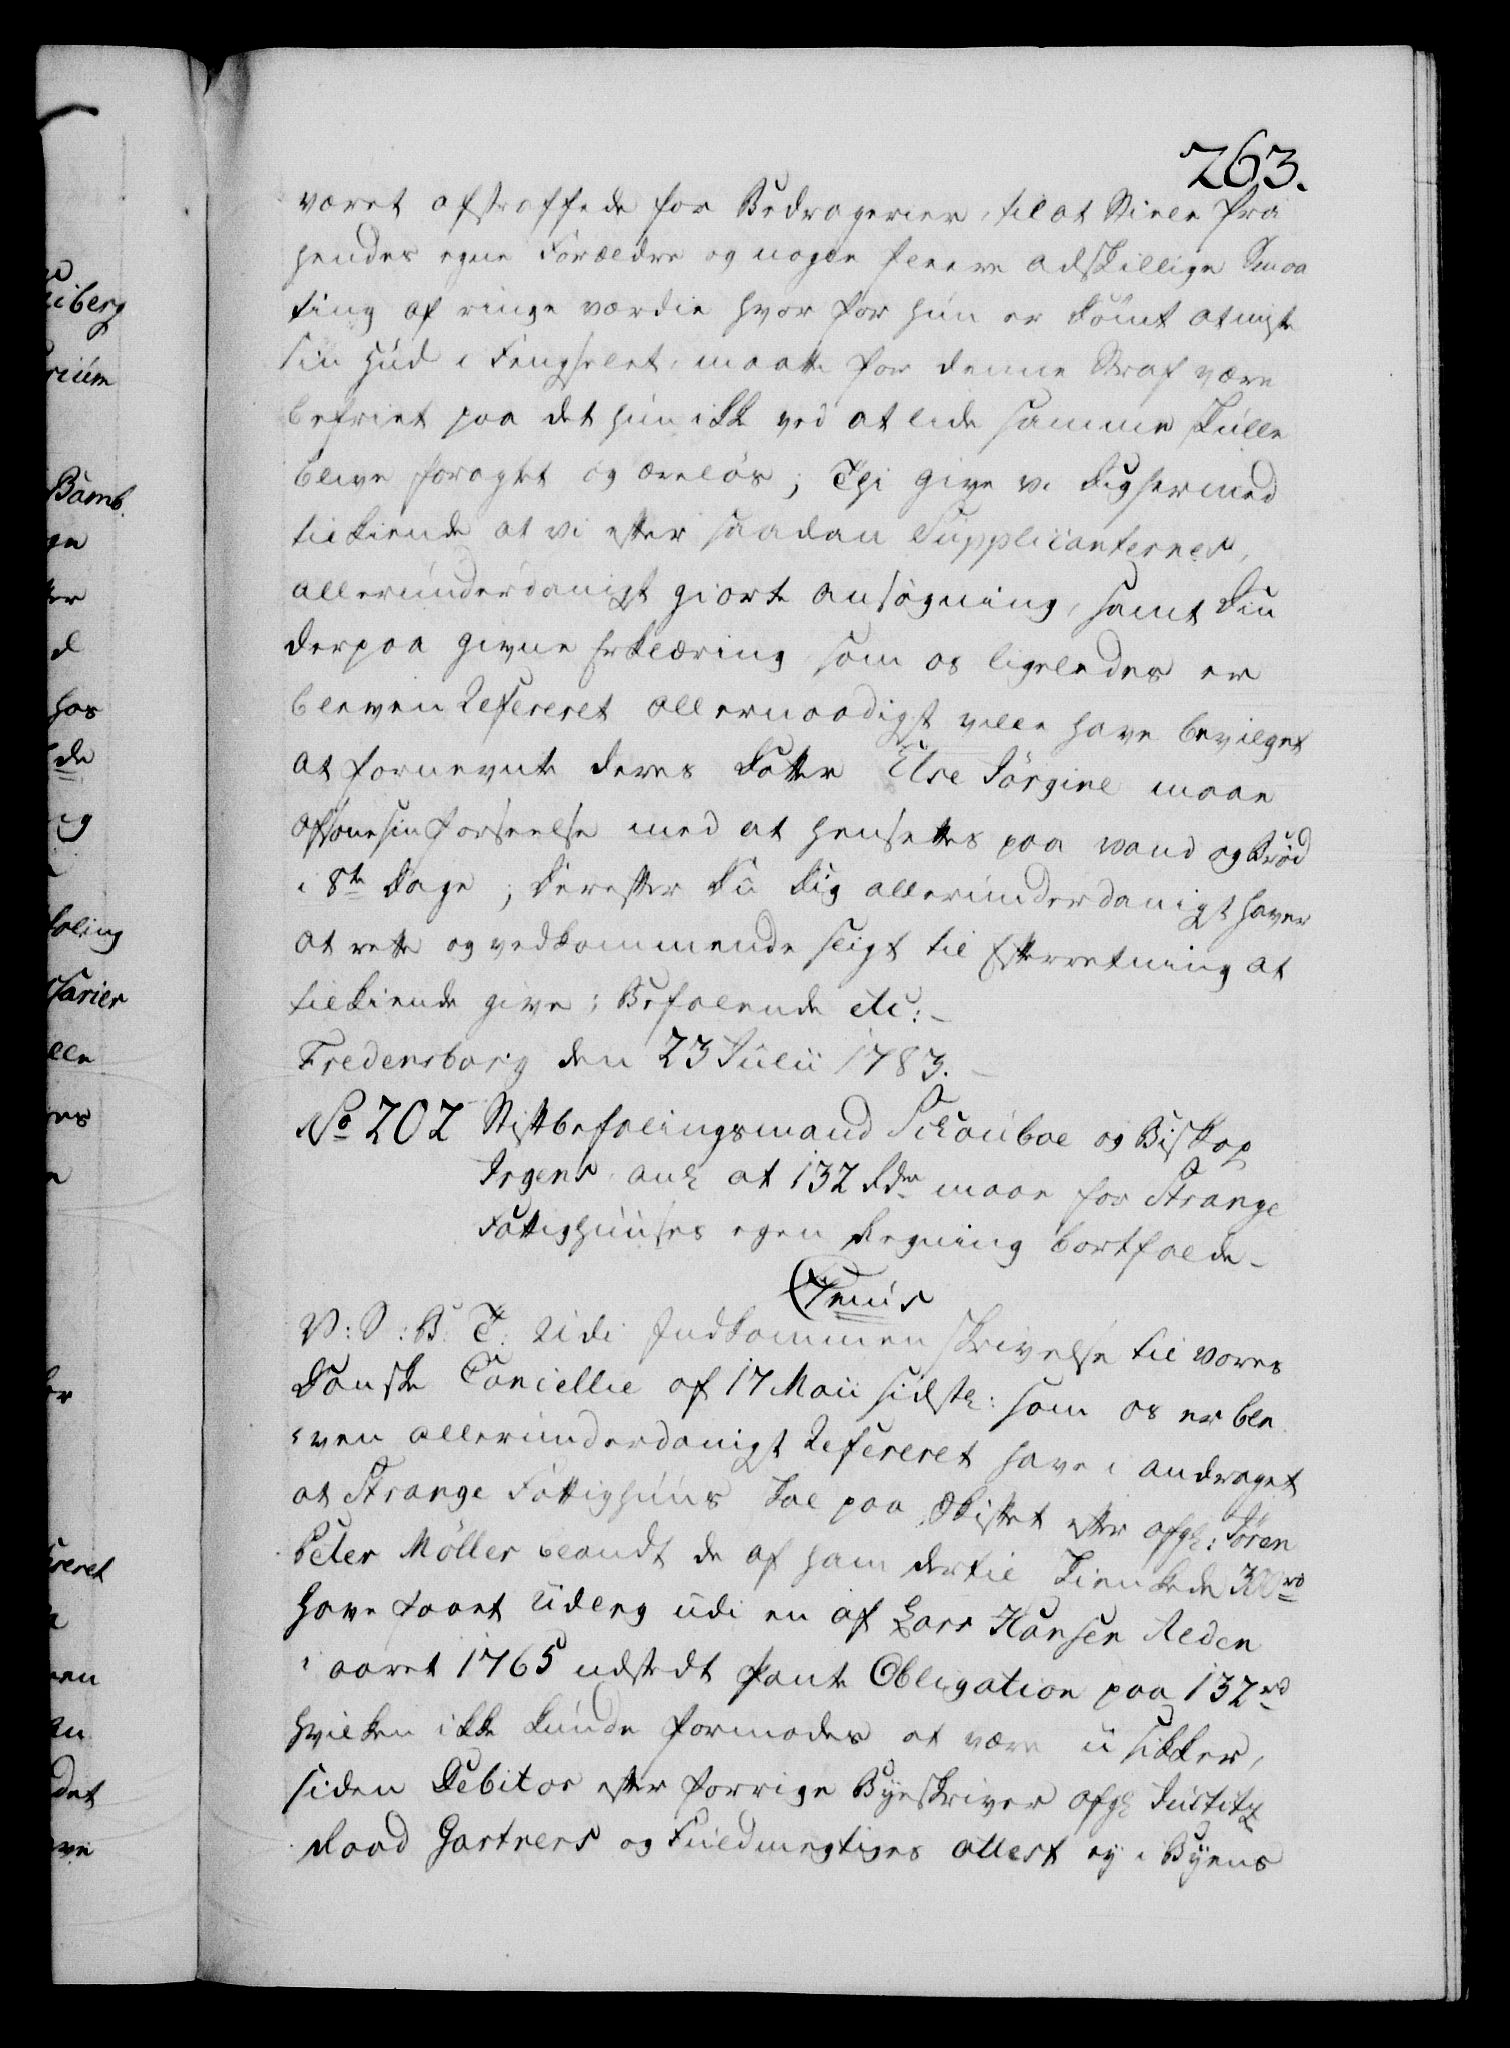 263.
været afstraffede for Bedragerier, til at Stiele fra
hendes egne Forældre og nogle fleere adskillige Smaa
ting af ringe værdie hvor for hun er dömt at miste
sin Hud i Fengselet, maatte for denne Straf være
befriet paa det hun ikke ved at lide samme skulle
blive foragtet og æreløs; Thi give vi dig hermed
tilkiende at vi efter saadan Supplicanternes,
allerunderdanigst giorte ansøgning, samt din
derpaa givne Erklæring som os ligeledes er
bleven Refereret allernaadigst ville have bevilget
at fornevnte deres Datter Else Jörgine maae
afsone sin forseelse med at hensettes paa vand og Brød
i 8te Dage; derefter du dig allerunderdanigst haver
at rette og vedkommende sligt til Efterretning at
tilkiende give; Befalende etc: -
Fredensborg den 23 Julii 1783. -
No 202 Stiftbefalingsmand Schouboe og Biskop
Irgens anl at 132 Rdr maae for Strange
Fattighuuses egen Regning bortfalde -
V: S: B: T: Udi Indkommen skrivelse til vores
Danske Cancellie af 17 Maii sidstl: som os er ble
-ven allerunderdanigst Refereret have i andraget
at Strange Fattighuus skal paa Skiftet efter afgl: Sören
Peter Möller blandt de af ham dertil skienkede 300 rd
have faaet Udlæg udi en af Lars Hansen Reden
i aaret 1765 udstedt Pante Obligation paa 132 rd
hvilken ikke kunde formodes at være u sikker,
siden Debitor efter forrige Byeskriver afgl Justitz
Raad Gartners og Fuldmegtiges attest ey i Byens